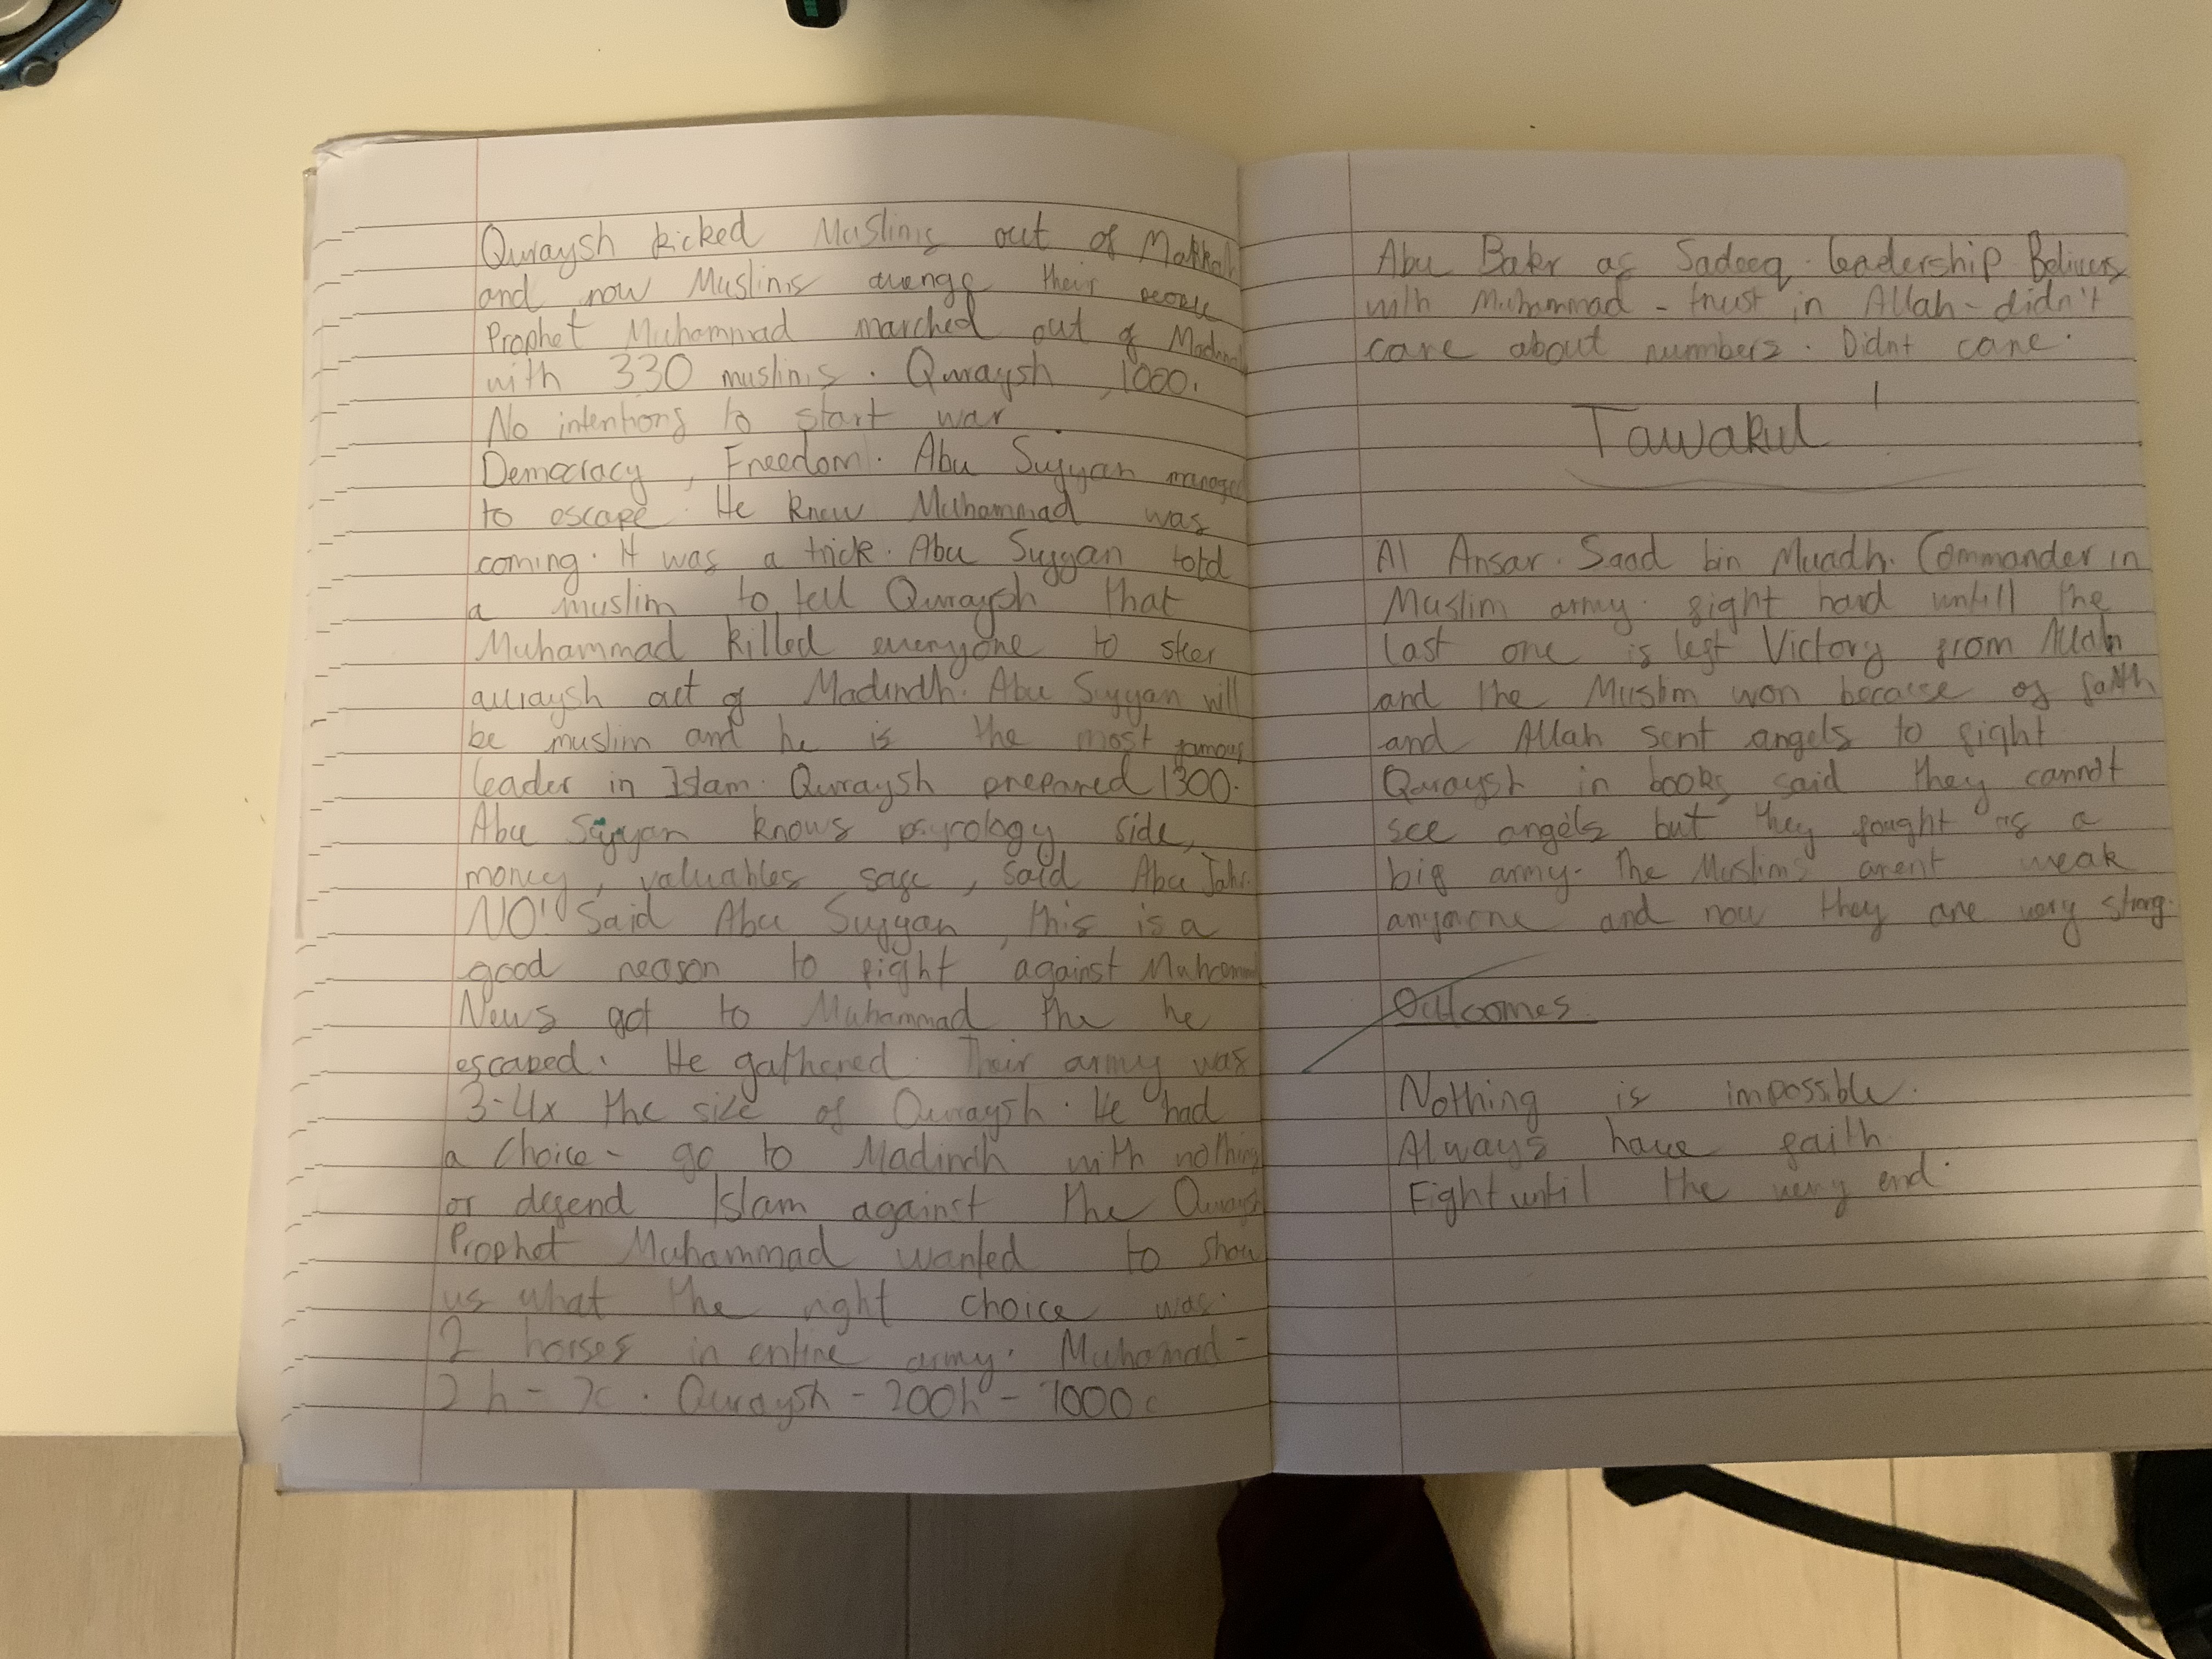 Quraysh kicked Muslims out of Makkah
and now Muslims avenge their people
Prophet Muhammad marched out of Madinah
with 330 muslims. Quraysh, 1000.
No intentions to start war
Democracy, Freedom. Abu Sufyan managed
to escape. He knew Muhammad was
coming. It was a trick. Abu Sufyan told
a muslim to tell Quraysh that
Muhammad killed everyone to steer
quraysh out of Madindh. Abu Sufyan will
be muslim and he is the most famous
leader in Islam. Quraysh prepared 1300.
Abu Sufyan knows psyrology side,
money, valuables safe, said Abu Jahl.
NO! Said Abu Sufyan, this is a
good reason to fight against Muhammad
News got to Muhammad the he
escaped. He gathered. Their army was
3-4x the size of Quraysh. He had
a choice - go to Madindh with nothing
or defend Islam against the Quraysh
Prophet Muhammad wanted to show
us what the right choice was.
2 horses in entire army. Muhamad -
2h - 7c. Quraysh - 200h - 1000c
Abu Bakr as Sadeeq. leadership Belivers
with Muhammad - trust in Allah - didn't
care about numbers. Didnt care.
Tawakul
Al Ansar. Saad bin Muadh. Commander in
Muslim army. fight hard untill the
last one is left Victory from Allah
and the Muslim won because of faith
and Allah sent angels to fight
Quraysh in books said they cannot
see angels but they fought as a
big army. The Muslims arent weak
anymore and now they are very strong.
Outcomes
Nothing is impossible.
Always have faith
Fight until the very end.